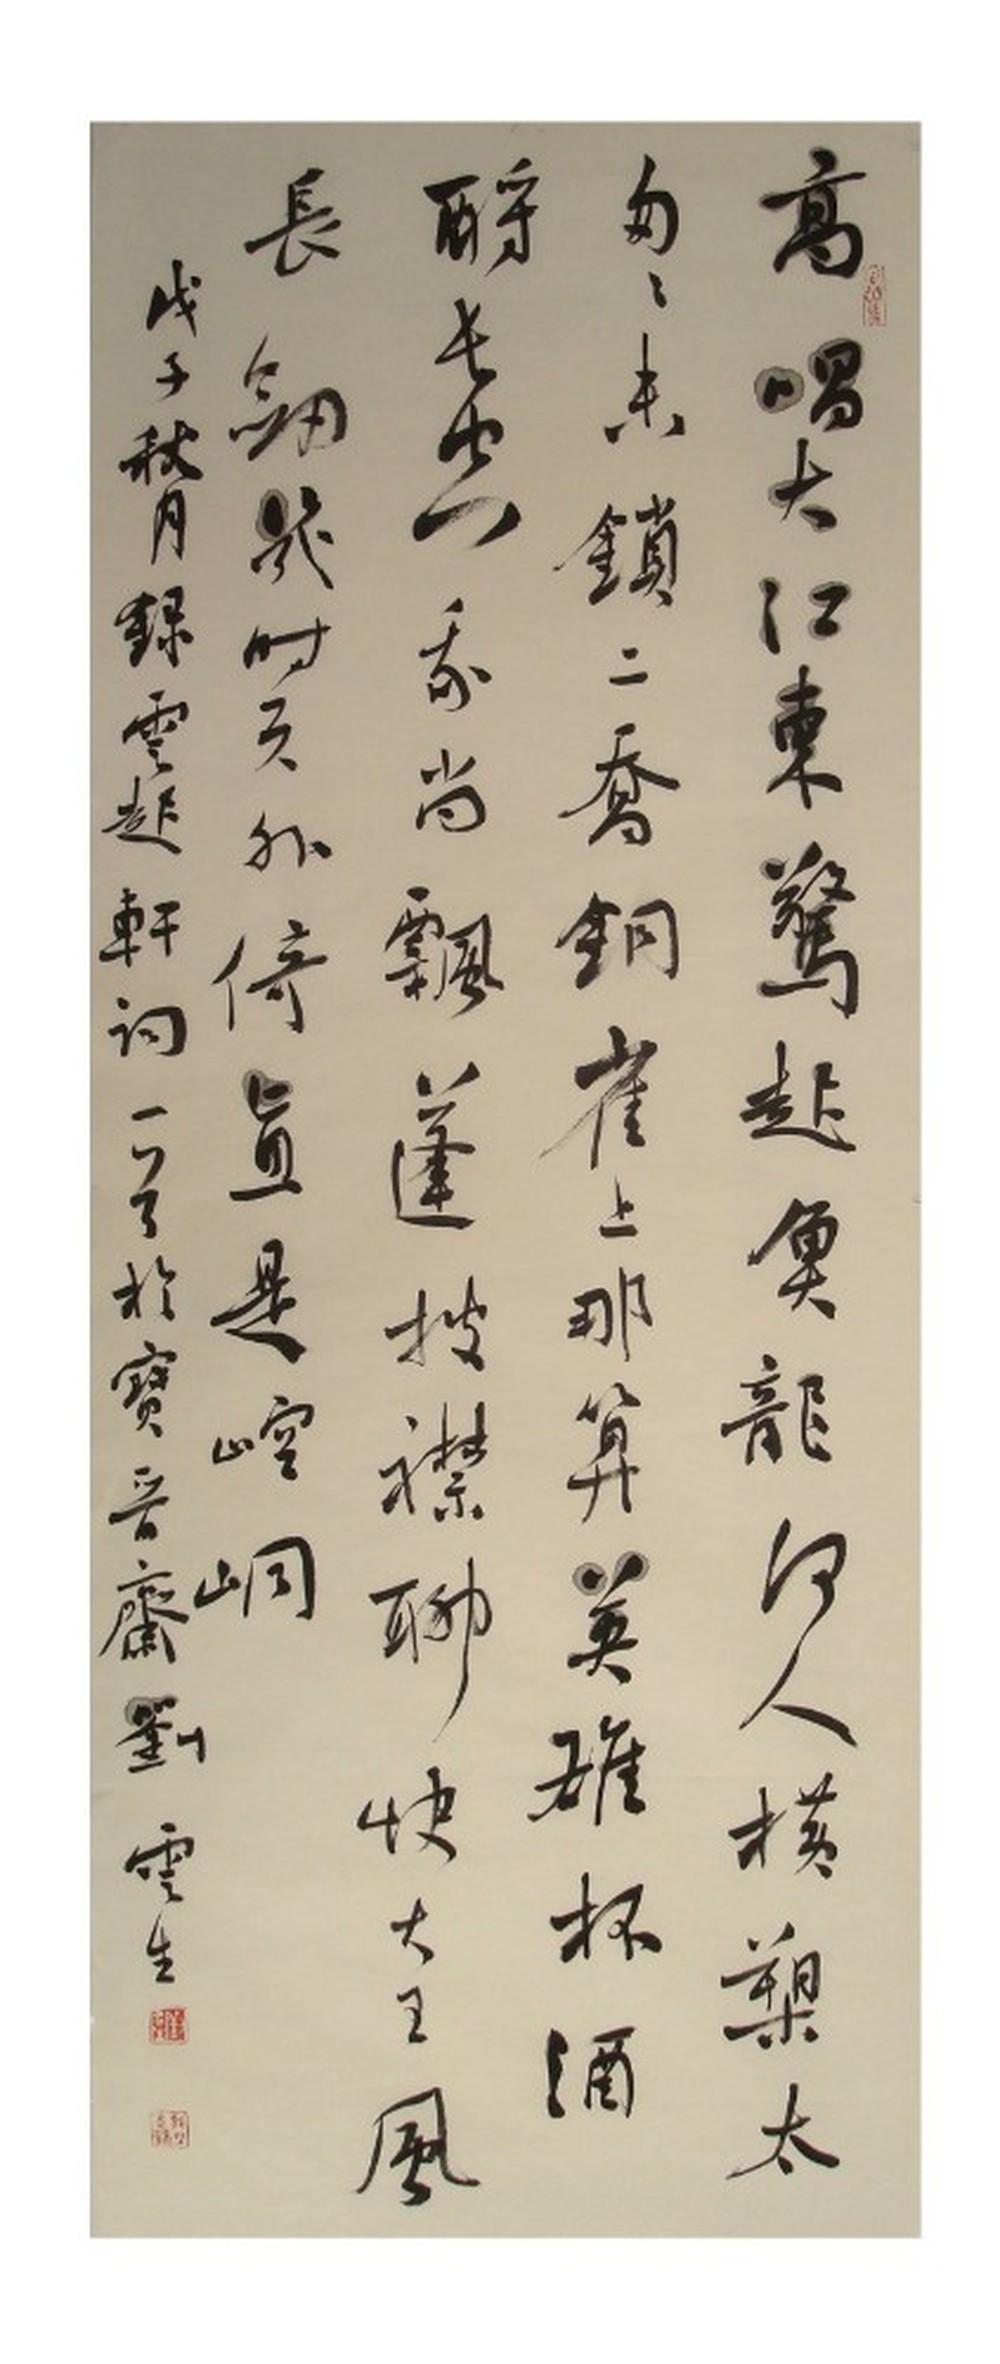 高唱大江東驚起魚龍何人橫槊太
匆々未鎖二喬銅雀上那算英雄杯酒
酹長空我尚飄蓬披襟聊快大王風
長劒幾時天外倚直是崆峒
戊子秋月録雲起軒詞一首於寶晉齋劉雲生